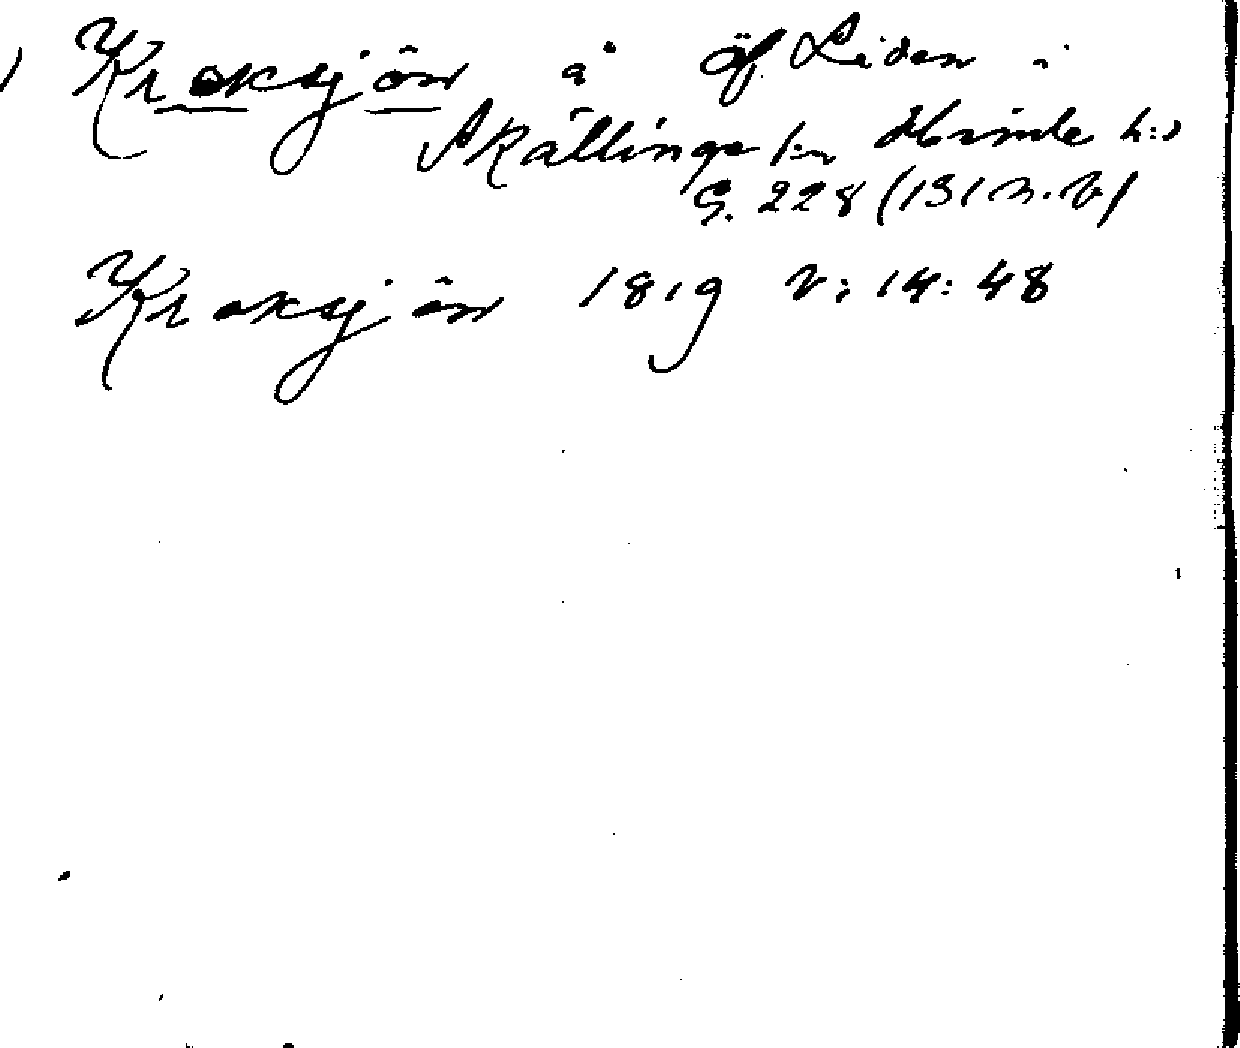 ) Kroksjön å öf Liden i
Skällinge s:n Himle h:d
G. 228 (1313. V)
Kroksjön 1819 V: 14: 48